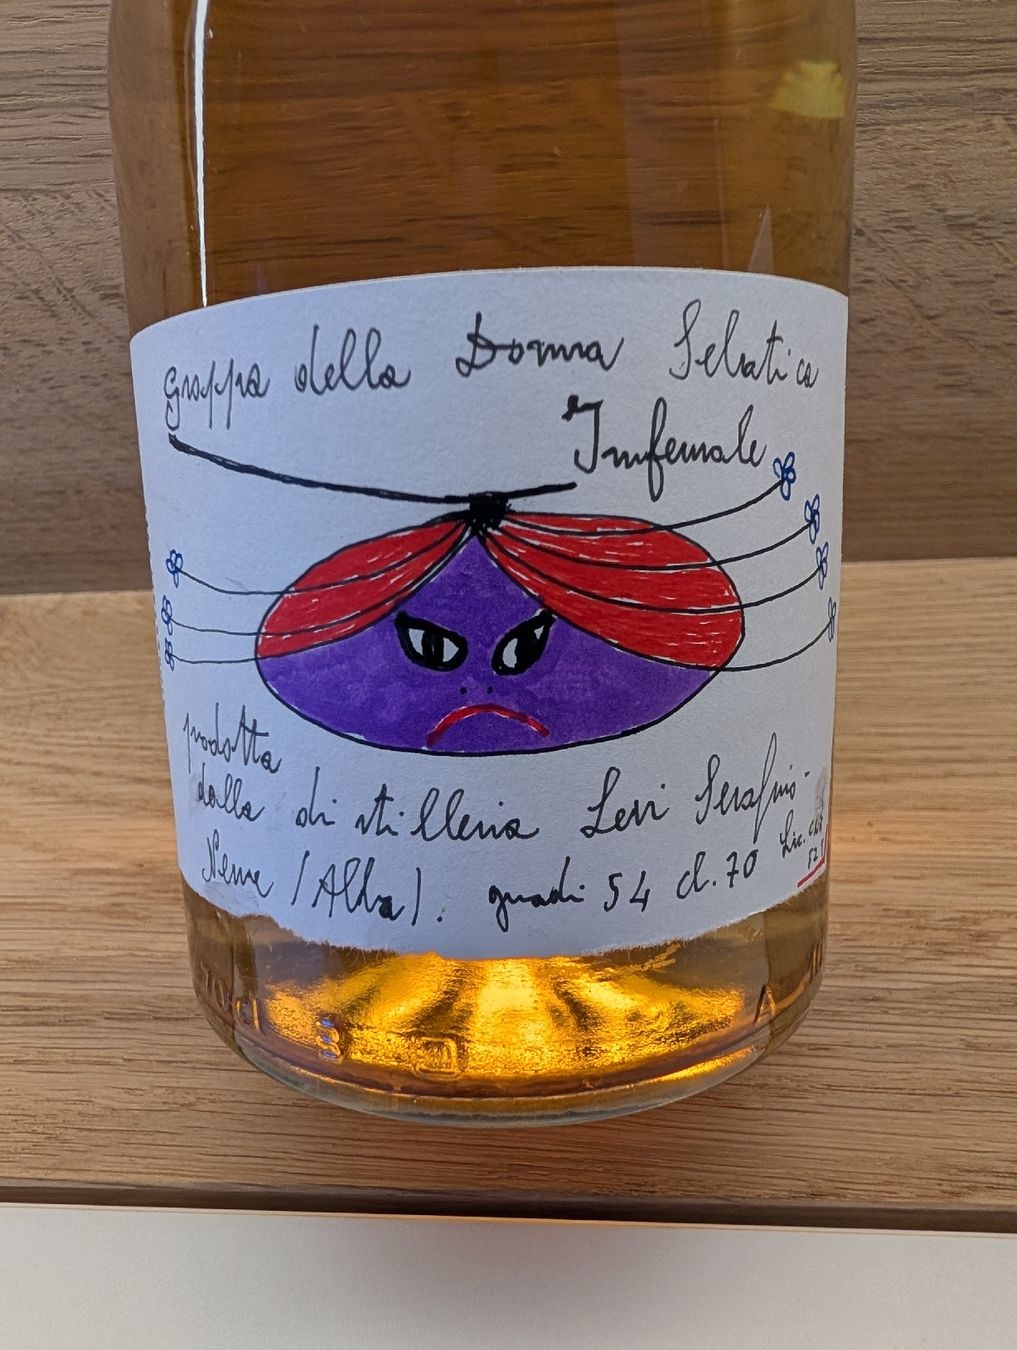 grappa della Donna Selvatica
Infernale
prodotta
dalla distilleria Levi Serafino-
Neive (Alba). gradi 54 cl. 70
Lic.